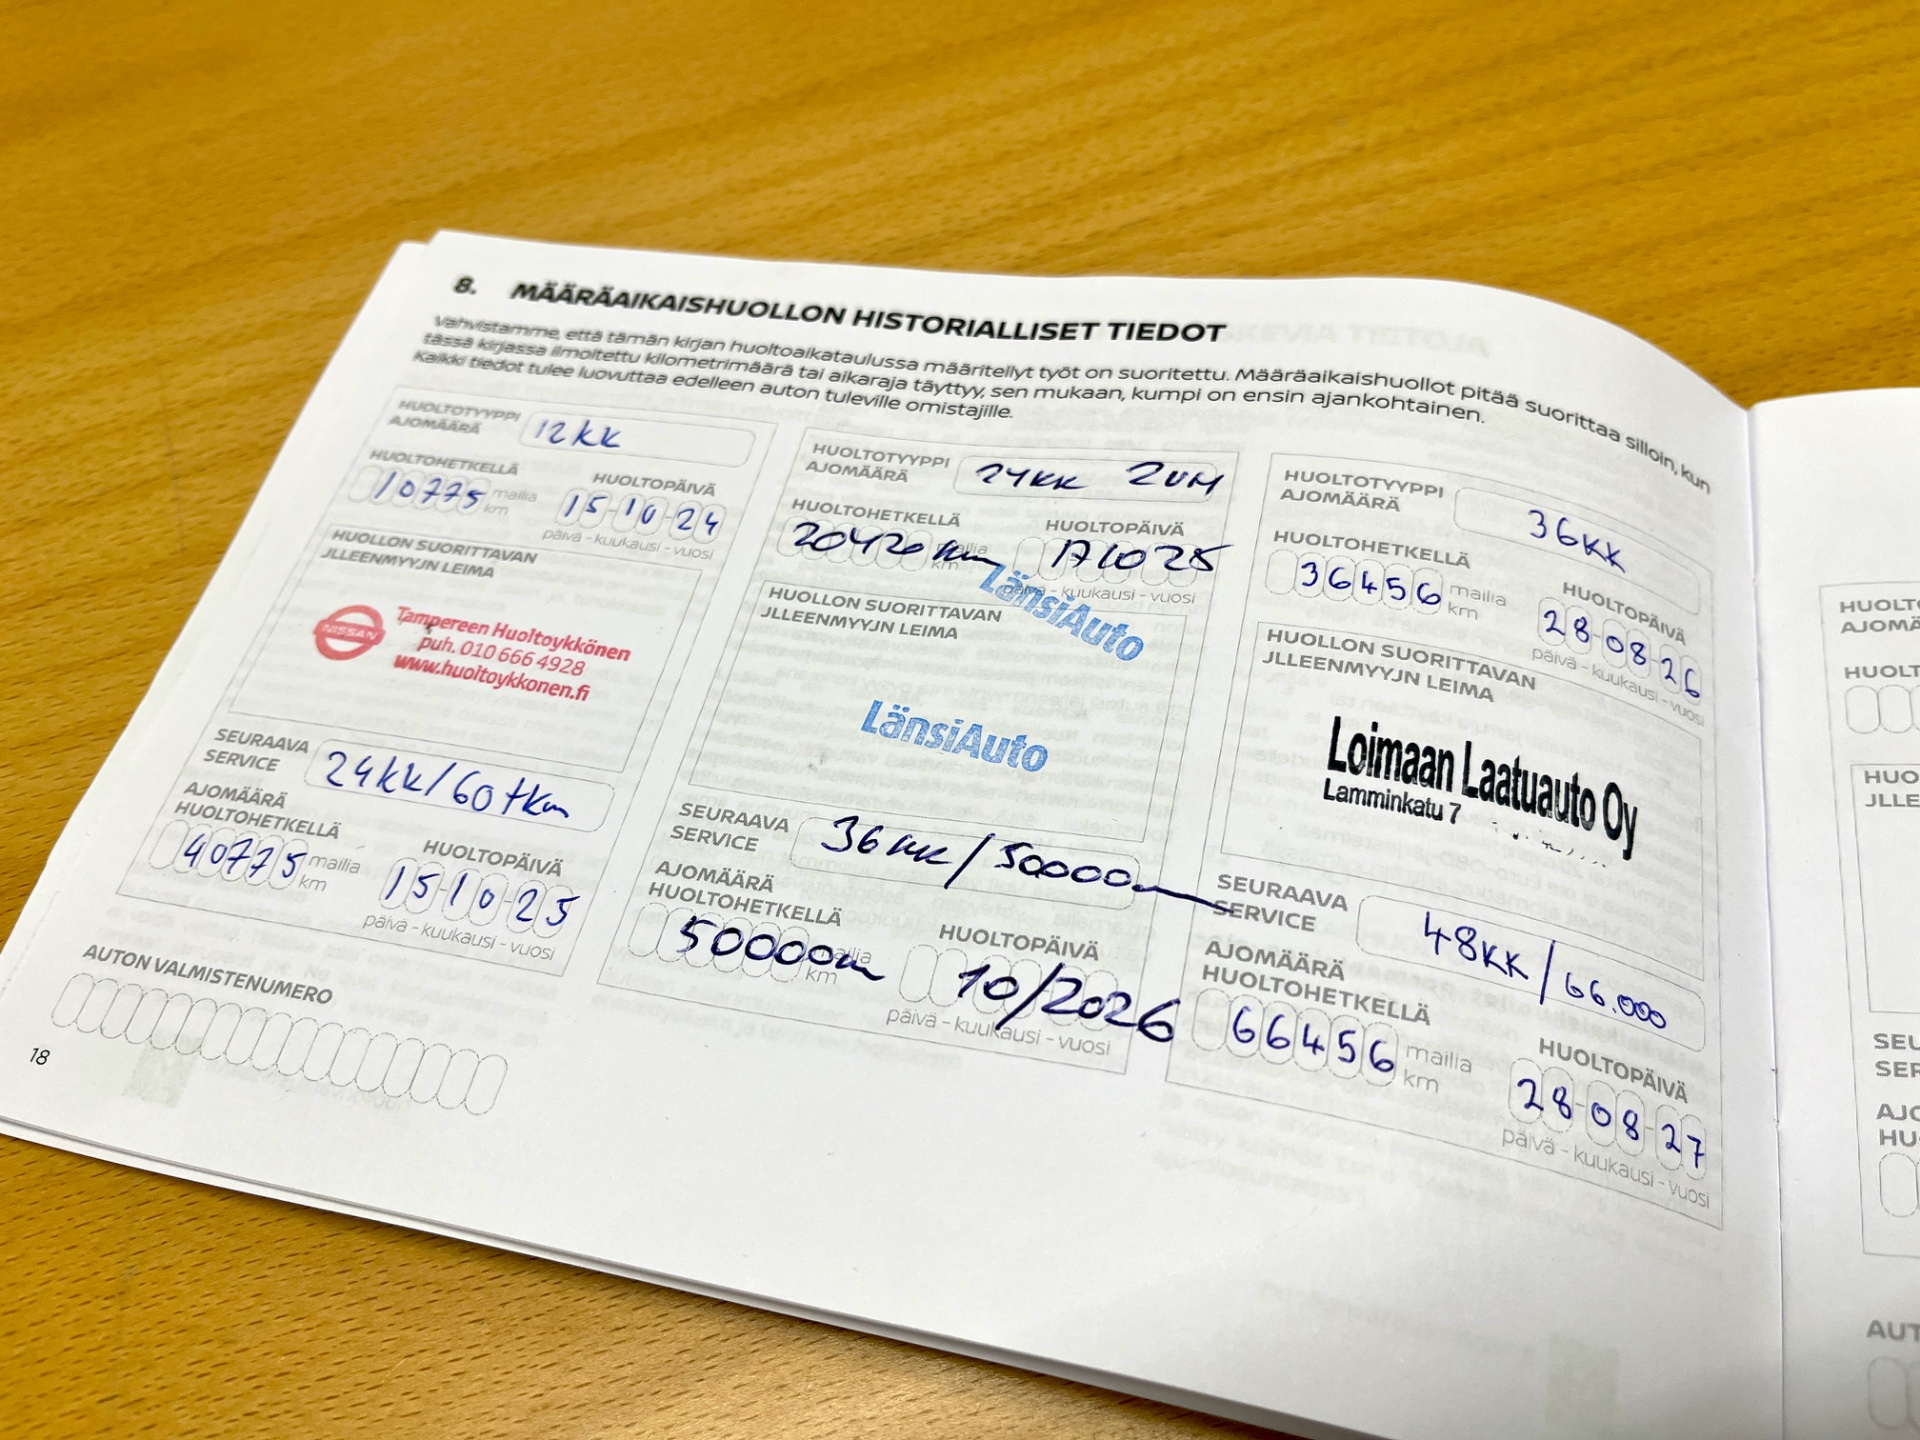 8. MÄÄRÄAIKAISHUOLLON HISTORIALLISET TIEDOT
Vahvistamme, että tämän kirjan huoltoaikataulussa määritellyt työt on suoritettu. Määräaikaishuollot pitää suorittaa silloin, kun
tässä kirjassa ilmoitettu kilometrimäärä tai aikaraja täyttyy, sen mukaan, kumpi on ensin ajankohtainen.
Kaikki tiedot tulee luovuttaa edelleen auton tuleville omistajille.
HUOLTOTYYPPI
AJOMÄÄRÄ
12KK
HUOLTOHETKELLÄ
HUOLTOPÄIVÄ
10775 mailia
km
15-10-24
päivä - kuukausi - vuosi
HUOLLON SUORITTAVAN
JLLEENMYYJN LEIMA
NISSAN
Tampereen Huoltoykkönen
puh. 010 666 4928
www.huoltoykkonen.fi
SEURAAVA
SERVICE
24KK/60tkm
AJOMÄÄRÄ
HUOLTOHETKELLÄ
HUOLTOPÄIVÄ
40775 mailia
km
15-10-25
päivä - kuukausi - vuosi
AUTON VALMISTENUMERO
18
HUOLTOTYYPPI
AJOMÄÄRÄ
24KK
HUOLTOHETKELLÄ
HUOLTOPÄIVÄ
20420 km mailia
km
171025
päivä - kuukausi - vuosi
LänsiAuto
HUOLLON SUORITTAVAN
JLLEENMYYJN LEIMA
LänsiAuto
SEURAAVA
SERVICE
36KK/50000
AJOMÄÄRÄ
HUOLTOHETKELLÄ
HUOLTOPÄIVÄ
50000 mailia
km
10/2026
päivä - kuukausi - vuosi
HUOLTOTYYPPI
AJOMÄÄRÄ
36KK
HUOLTOHETKELLÄ
HUOLTOPÄIVÄ
36456 mailia
km
28-08-26
päivä - kuukausi - vuosi
HUOLLON SUORITTAVAN
JLLEENMYYJN LEIMA
Loimaan Laatuauto Oy
Lamminkatu 7
SEURAAVA
SERVICE
48KK/66.000
AJOMÄÄRÄ
HUOLTOHETKELLÄ
HUOLTOPÄIVÄ
66456 mailia
km
28-08-27
päivä - kuukausi - vuosi